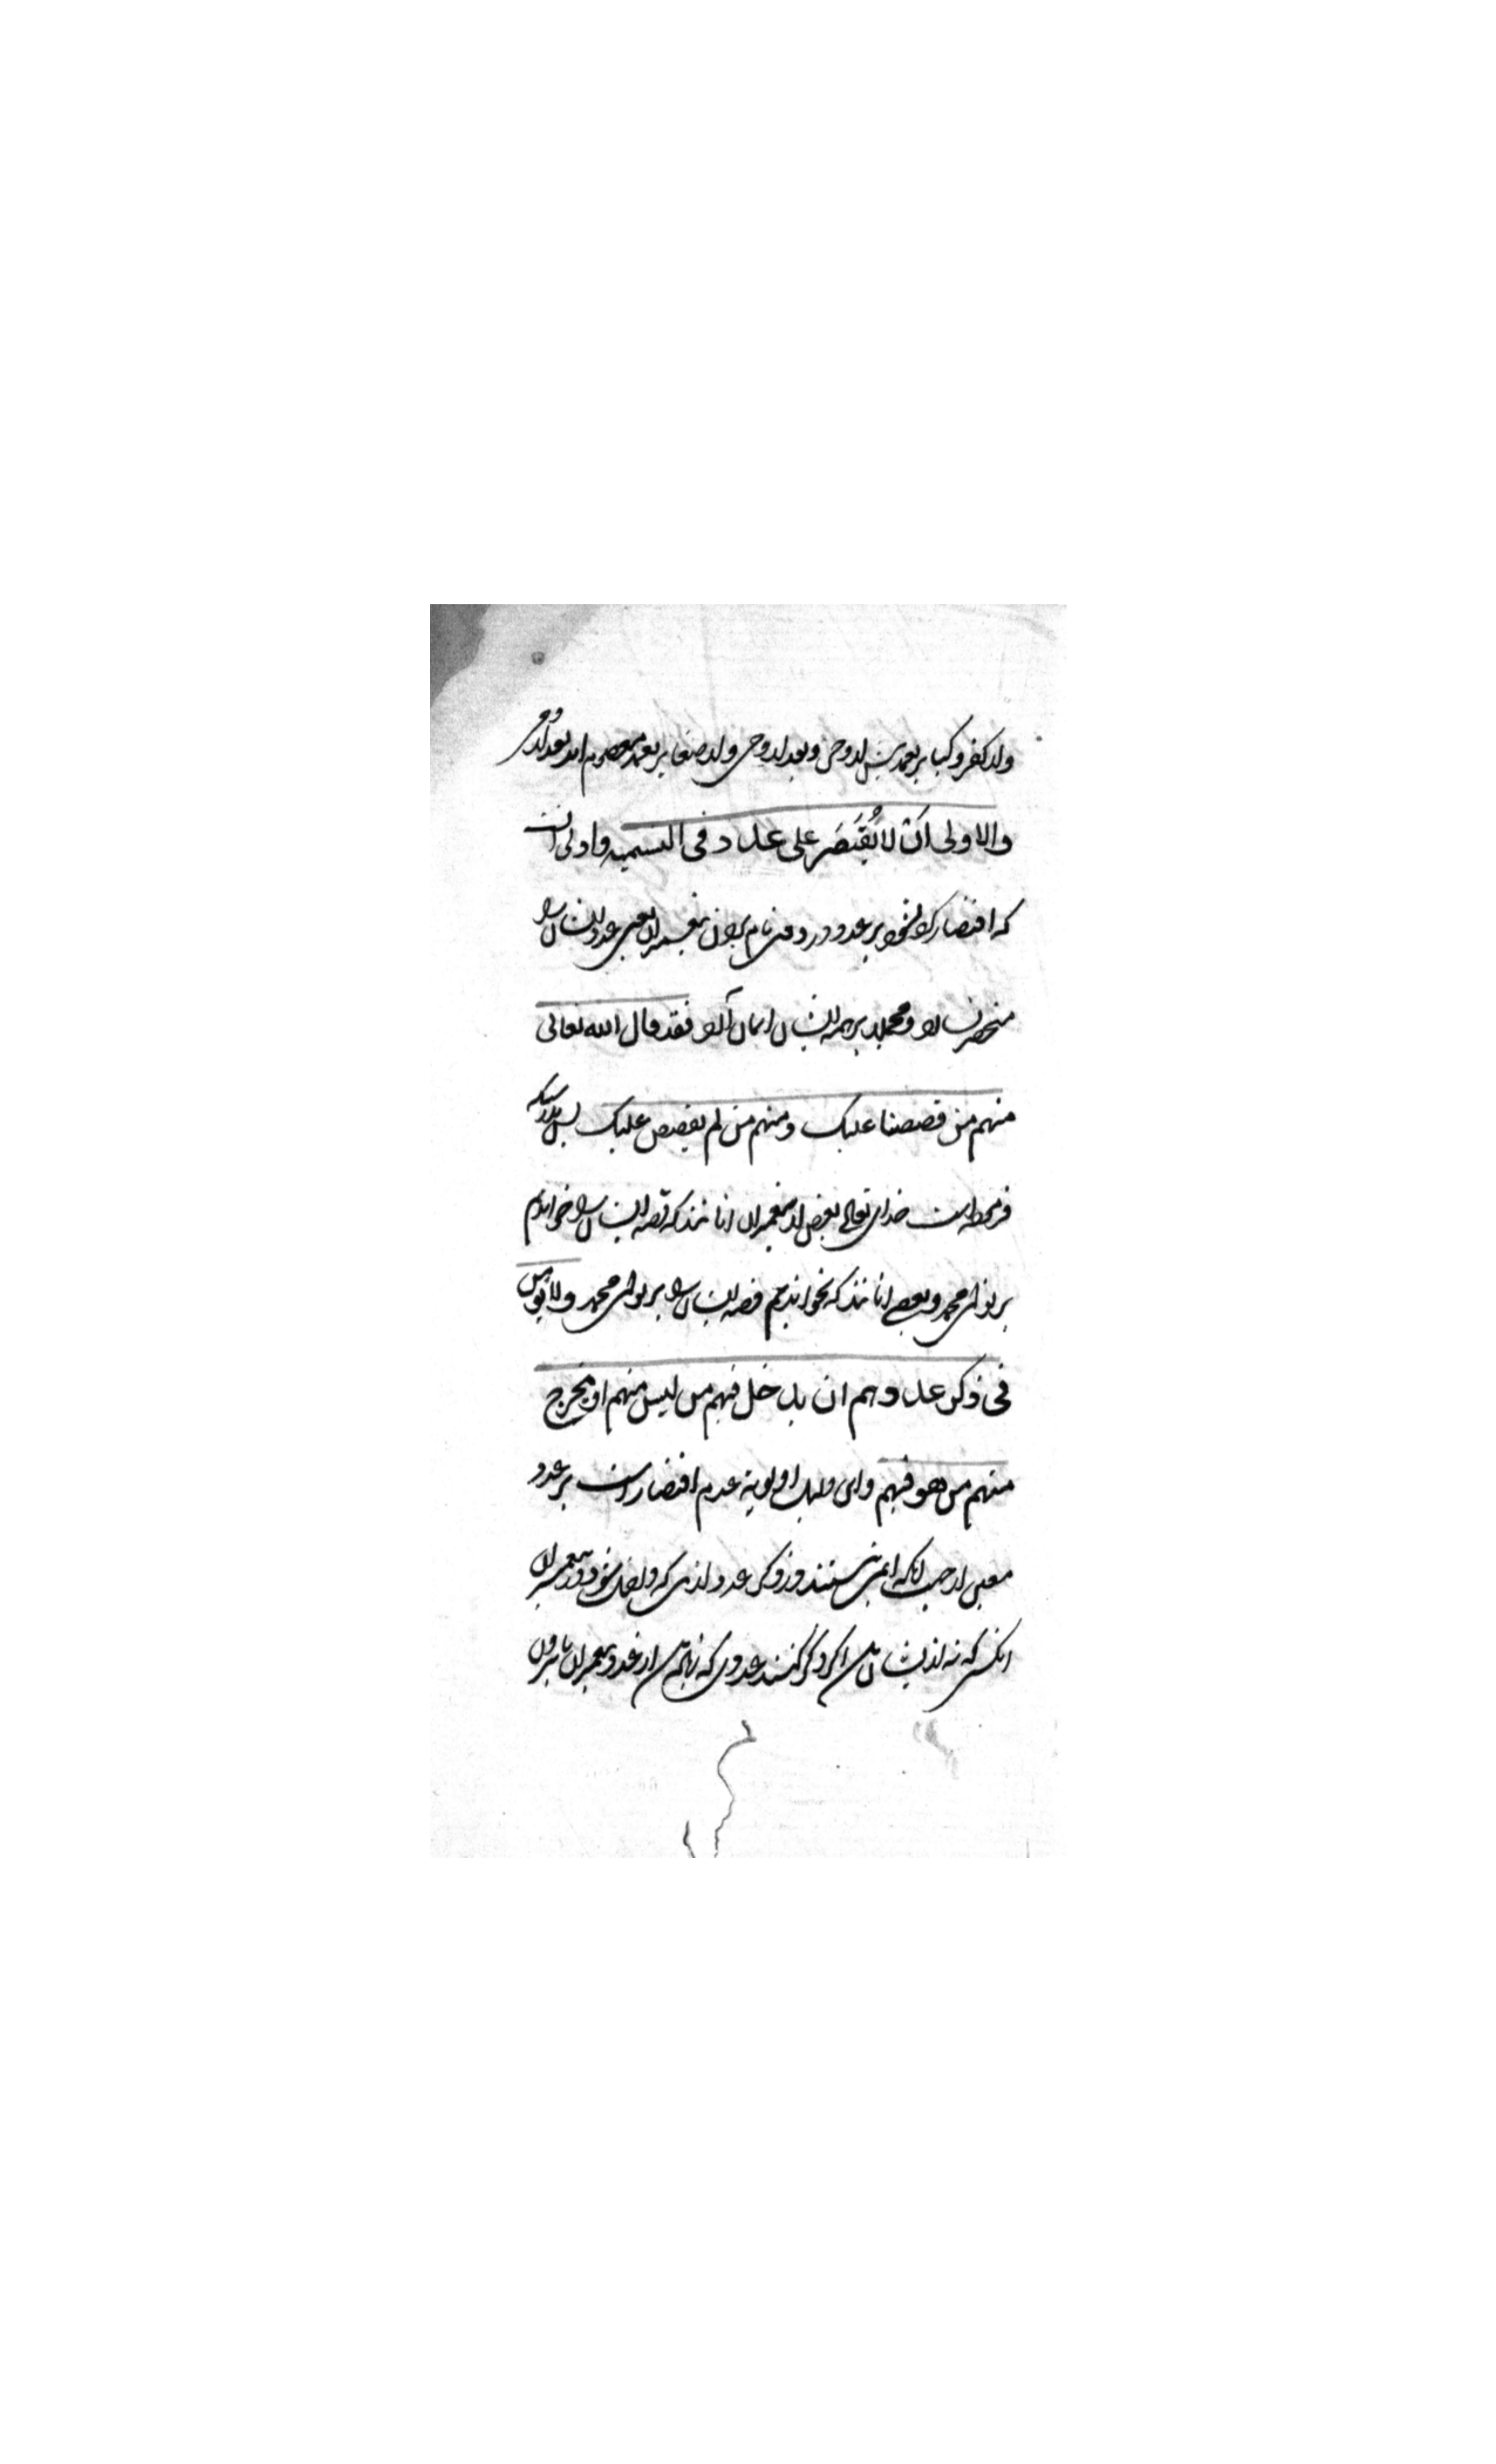 و از کفر و کبایر بعمد پیش از وحی و بعد از وحی و از صغایر بعمد معصوم اند بعد از وحی
والاولی اَنْ لا یُقْتَصَرَ علی عدد فی التسمیه و اولی انست
که اقتصار کرده نشود بر عدد در وقت نام بردن پیغمبران یعنی عدد ایشان را
منحصر نسازد و مجملا بر همه ایشان ایمان آرد فقد قال الله تعالی
منهم من قصصنا علیک و منهم من لم نقصص علیک پس بدرستیکه
فرموده است خدای تعالی بعض از پیغمبران انانند که قصه ایشان را خواندیم
بر تو ای محمد و بعضے انانند که نخواندیم قصه ایشان را بر تو ای محمد ولا یؤمن
فی ذکر عددهم ان یدخل فیهم من لیس منهم او یخرج
منهم من هو فیهم و این دلیل اولویة عدم اقتصار است بر عدد
معین از جهت انکه ایمن نیستند در ذکر عدد ازین که داخل شود در پیغمبران
انکس که نه از ایشان است اگر ذکر کنند عددی که زیاده از عدد پیغمبران یا بیرون